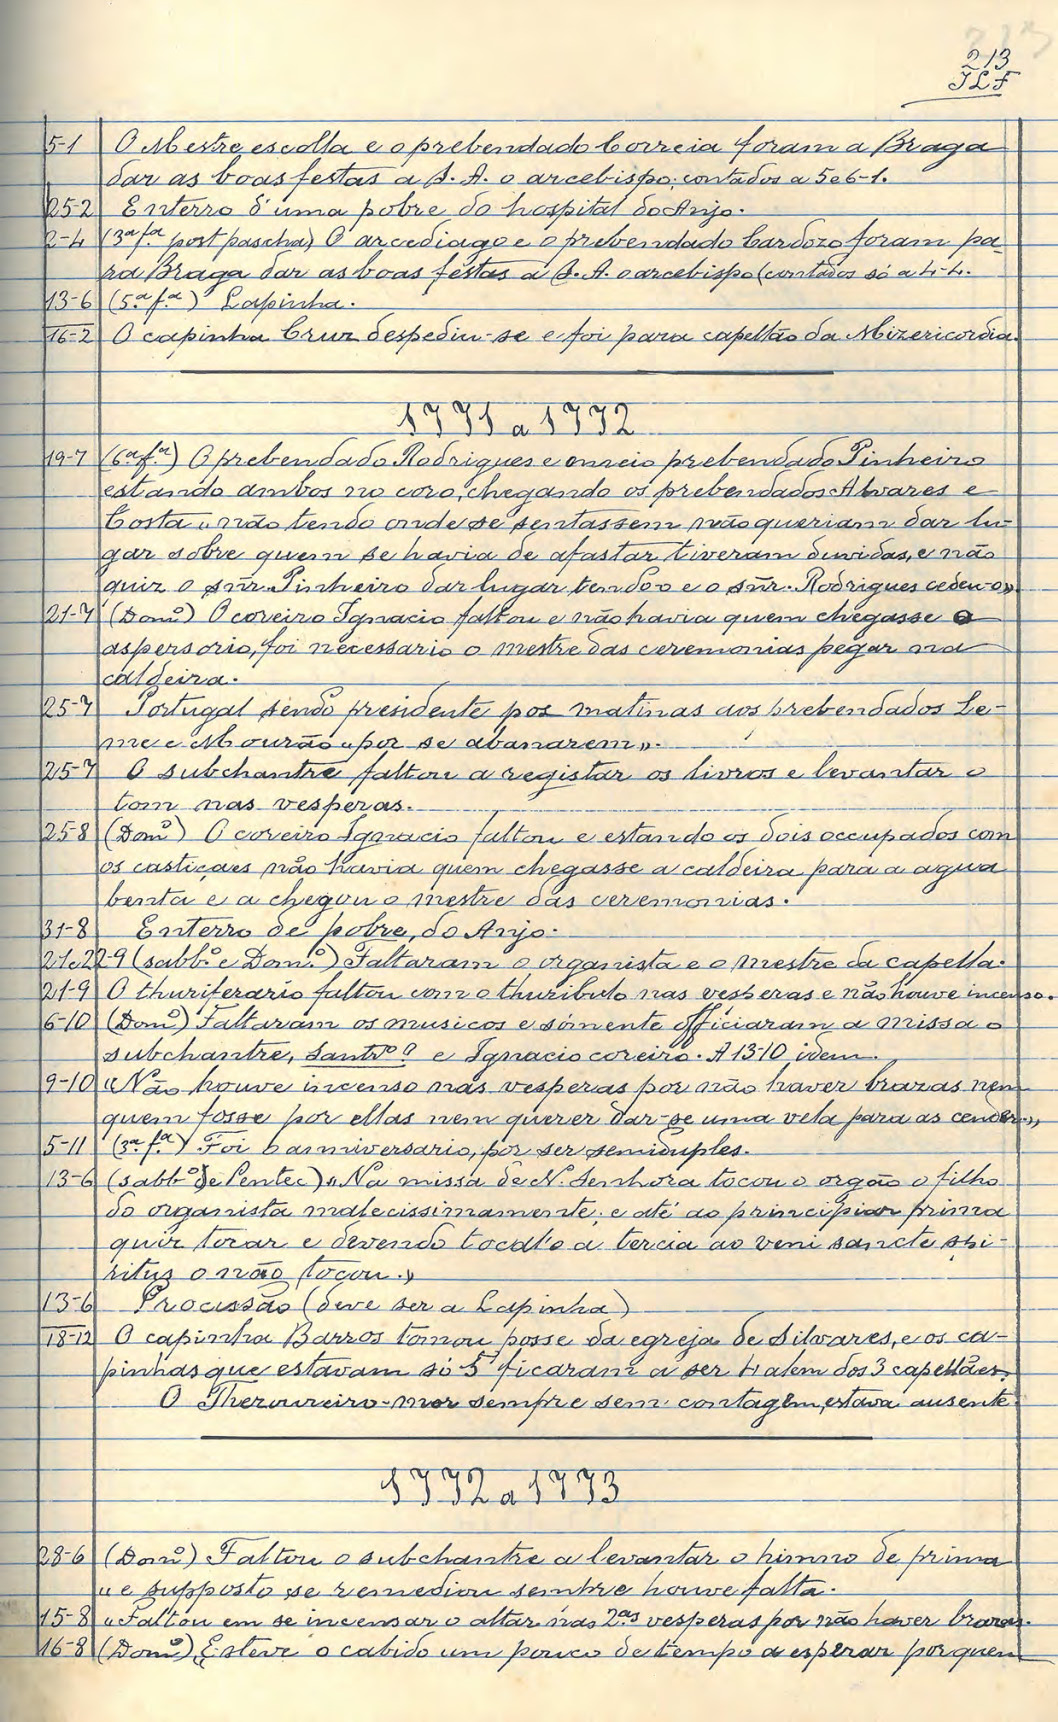 213
JLF
5-1 O Mestre escolla e o prebendado Correia foram a Braga
dar as boas festas a S. A. o arcebispo; contados a 5 e 6-1.
25-2 Enterro d'uma pobre do hospital do Anjo.
2-4 (3ª fª post pascha) O arcediago e o prebendado Cardozo foram pa-
ra Braga dar as boas festas a S. A. o arcebispo (contados só a 4-4.
13-6 (5ª fª) Lapinha.
16-2 O capinha Cruz despediu-se e foi para capellão da Mizericordia.
1771 a 1772
19-7 (6ª fª) O prebendado Rodrigues e o meio prebendado Pinheiro
estando ambos no coro, chegando os prebendados Alvares e
Costa "não tendo onde se sentassem não queriam dar lu-
gar sobre quem se havia de afastar tiveram duvidas, e não
quiz o snr. Pinheiro dar lugar tendo-o e o snr. Rodrigues cedeu-o»
21-7 (Domº) O coreiro Ignacio faltou e não havia quem chegasse o
aspersorio, foi necessario o mestre das ceremonias pegar na
caldeira.
25-7 Portugal sendo presidente pos matinas aos prebendados Le-
me e Mourão "por se abanarem».
25-7 O subchantre faltou a registar os livros e levantar o
tom nas vesperas.
25-8 (Domº) O coreiro Ignacio faltou e estando os dois occupados com
os castiçaes não havia quem chegasse a caldeira para a agua
benta e a chegou o mestre das ceremonias.
31-8 Enterro de pobre, do Anjo.
21 e 22-9 (sabbº e Domº) Faltaram o organista e o mestre da capella.
21-9 O thuriferario faltou com o thuribulo nas vesperas e não houve incenso.
6-10 (Domº) Faltaram os musicos e sómente officiaram a missa o
subchantre, Santºˢ e Ignacio coreiro. A 13-10 idem.
9-10 «Não houve incenso nas vesperas por não haver brazas nem
quem fosse por ellas nem querer dar-se uma vela para as cender»
5-11 (3ª fª) Foi anniversario, por ser semiduples.
13-6 (sabbº de Pentec) «Na missa de N. Senhora tocou o orgão o filho
do organista malecissimamente; e até ao principiar prima
quiz tocar e devendo tocal'o a tercia ao veni sancte spi-
ritus o não tocou.»
13-6 Procissão (deve ser a Lapinha)
18-12 O capinha Barros tomou posse da egreja de Silvares, e os ca-
pinhas que estavam só 5 ficaram a ser 4 alem dos 3 capellães.
O Thezoureiro-mor sempre sem contagem, estava ausente.
1772 a 1773
28-6 (Domº) Faltou o subchantre a levantar o himno de prima
"e supposto se remediou sembre houve falta.
15-8 «Faltou em se incensar o altar nas 2ªˢ vesperas por não haver brazas.
16-8 (Domº) Esteve o cabido um pouco de tempo a esperar por quem